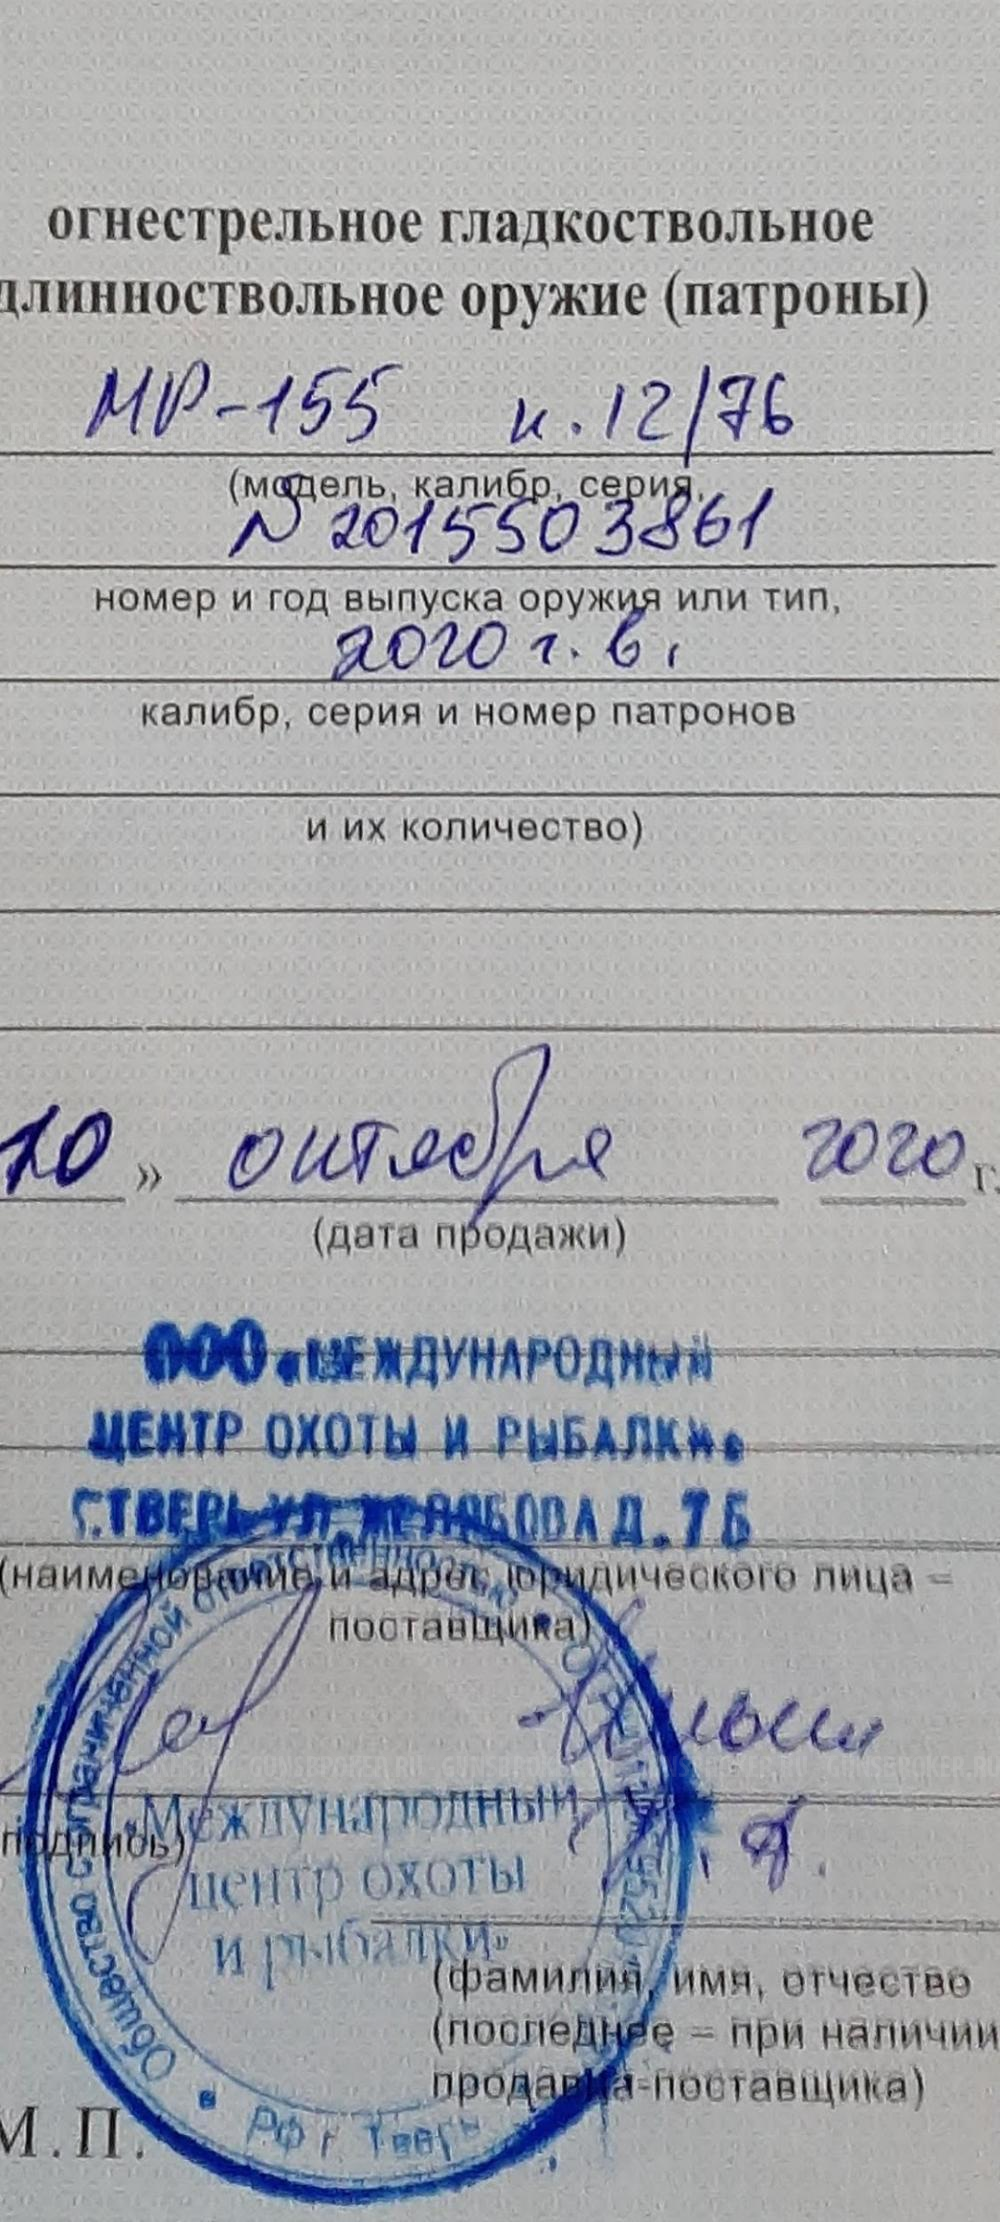 огнестрельное гладкоствольное
длинноствольное оружие (патроны)
МР-155 к. 12/76
(модель, калибр, серия,
№ 2015503861
номер и год выпуска оружия или тип,
2020 г. в.
калибр, серия и номер патронов
и их количество)
10 » октября 2020 г.
(дата продажи)
ООО «МЕЖДУНАРОДНЫЙ
ЦЕНТР ОХОТЫ И РЫБАЛКИ»
Г.ТВЕРЬ УЛ.ЖЕЛЯБОВА Д.7Б
(наименование и адрес юридического лица –
поставщика)
Общество с ограниченной ответственностью
подпись)
«Международный
центр охоты
и рыбалки»
(фамилия, имя, отчество
(последнее – при наличии
продавца-поставщика)
М.П.
РФ г. Тверь